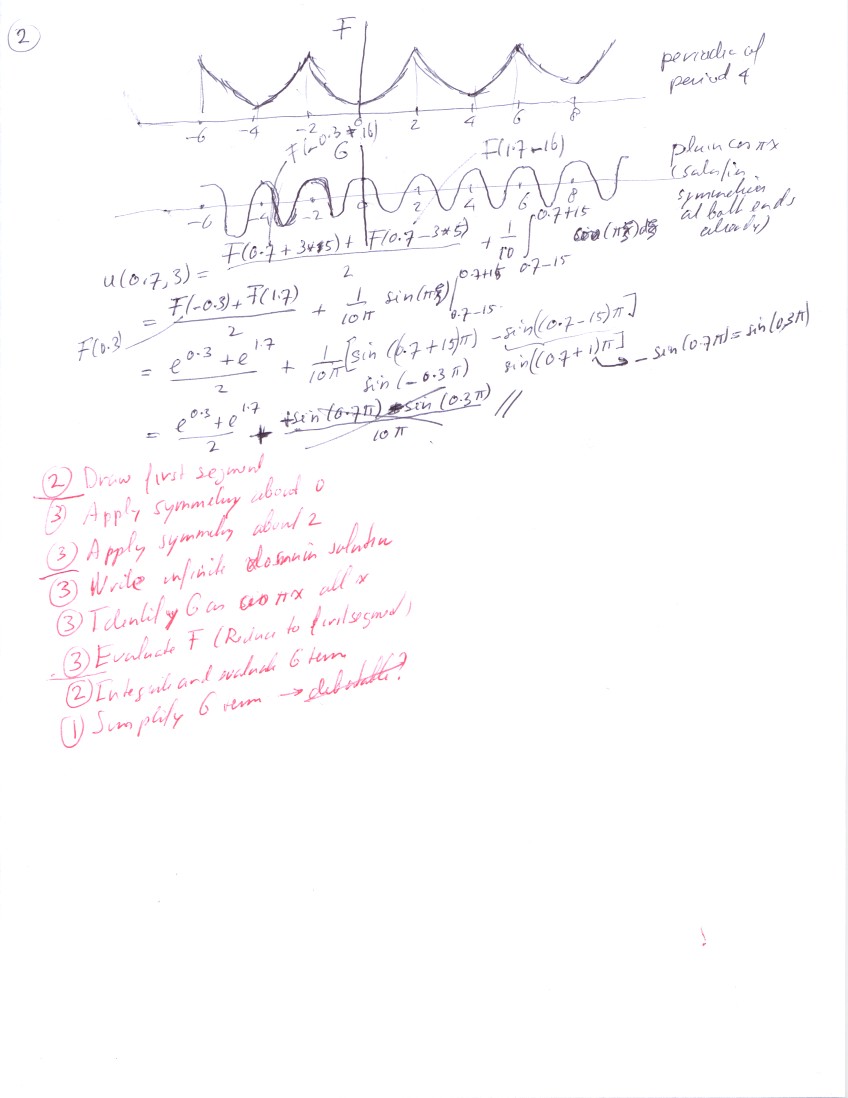 2
F
periodic of
period 4
-6 -4 -2 0 2 4 6 8
F(-0.3+16)
F(1.7-16)
G
plain cos πx
(satisfies
symmetries
at both ends
already)
-6 -4 -2 0 2 4 6 8
u(0.7,3) = F(0.7+3*5) + F(0.7-3*5) / 2 + 1/10 ∫ 0.7-15 0.7+15 cos(πξ)dξ
F(0.3)
= F(-0.3) + F(1.7) / 2 + 1/10π sin(πξ) | 0.7+15 0.7-15
= e^0.3 + e^1.7 / 2 + 1/10π [sin(0.7+15)π) - sin((0.7-15)π]
sin(-0.3π) sin((0.7+1)π] → - sin(0.7π) = sin(0.3π)
= e^0.3 + e^1.7 / 2 + +sin(0.7π) - sin(0.3π) / 10π //
2 Draw first segment
3 Apply symmetry about 0
3 Apply symmetry about 2
3 Write infinite domain solution
3 Identify G as cos πx all x
3 Evaluate F (Reduce to first segment)
2 Integrate and evaluate G term
1 Simplify G term → debatable?